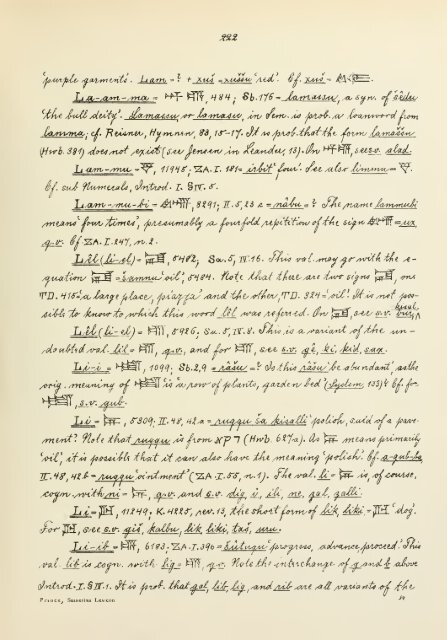 222
'purple garments'. Lam = ? + xuš = xuššu 'red'. Cf. xuš =
La-am-ma = , 484; Sb. 175 = lamassu, a syn. of šêdu
'the bull deity'. Lamassu, or lamasu, in Sem. is prob. a loanword from
lamma; cf. Reisner, Hymnen, 83, 15-17. It is prob. that the form lamaššu
(Hwb. 381) does not exist (see Jensen in Leander, 13). On , see s.v. alad.
Lam-mu = , 11945; ZA. I. 181 = irbit 'four'. See also limmu = .
Cf. sub Numerals, Introd. I. § IV. 5.
Lam-mu-bi = , 8291; II. 5, 23 = nâbu = ? The name lammubi
means 'four times', presumably a fourfold repitition of the sign = ux
q.v. Cf. ZA. I. 247, n. 2.
Lêl (li-el) = , 5482; Sa. 5, IV. 16. This val. may go with the e-
quation = šamnu 'oil', 5484. Note that there are two signs , one
TD. 415 = 'a large place, piazza' and the other, TD. 324 = 'oil'. It is not pos-
sible to know to which this word lêl was referred. On , see s.v.
Lêl (li-el) = , 5926; Sa. 5, IV. 8. This is a variant of the un-
doubted val. lil = , q.v. and for , see s.v. gê, ki, kid, sax.
Li-i = , 1099; Sb. 2, 9 = râšu = ? Is this râšu 'be abundant', as the
orig. meaning of is 'a row of plants, garden bed' (System, 133)? Cf. for
, s.v. gub.
Li = , 5309. II. 48, 42 a = ruggu ša kisalli 'polish, said of a pave-
ment'. Note that ruggu is from רקק (Hwb. 627a). As means primarily
'oil', it is possible that it can also have the meaning 'polish'. Cf. a-gub-ba,
II. 48, 42 b = ruggu 'ointment' (ZA. I. 55, n. 1). The val. li = is, of course,
cogn. with ni = , q.v. and s.v. dig, i, ili, ne, gal, galli.
Li = , 11249; K. 4225, rev. 13, the short form of lik, liki = 'dog'.
For , see s.v. giš, kalbu, lik, liki, taš, uru.
Li-ib = , 6193. ZA. I. 396 = šutugu 'progress, advance, proceed.' This
val. lib is cogn. with lig = , q.v. Note the interchange of g and b above
Introd. I. § III. 1. It is prob. that gal, lib, lig, and rib are all variants of the
Prince, Sumerian Lexicon